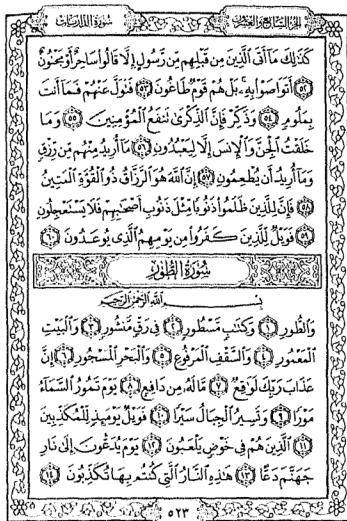 الجزء السابع والعشرون سورة الذاريات
كَذَٰلِكَ مَآ أَتَى ٱلَّذِينَ مِن قَبْلِهِم مِّن رَّسُولٍ إِلَّا قَالُواْ سَاحِرٌ أَوْ مَجْنُونٌ
٥٢ أَتَوَاصَوْاْ بِهِۦۚ بَلْ هُمْ قَوْمٌ طَاغُونَ ٥٣ فَتَوَلَّ عَنْهُمْ فَمَآ أَنتَ
بِمَلُومٍ ٥٤ وَذَكِّرْ فَإِنَّ ٱلذِّكْرَىٰ تَنفَعُ ٱلْمُؤْمِنِينَ ٥٥ وَمَا
خَلَقْتُ ٱلْجِنَّ وَٱلْإِنسَ إِلَّا لِيَعْبُدُونِ ٥٦ مَآ أُرِيدُ مِنْهُم مِّن رِّزْقٍ
وَمَآ أُرِيدُ أَن يُطْعِمُونِ ٥٧ إِنَّ ٱللَّهَ هُوَ ٱلرَّزَّاقُ ذُو ٱلْقُوَّةِ ٱلْمَتِينُ
٥٨ فَإِنَّ لِلَّذِينَ ظَلَمُواْ ذَنُوبًا مِّثْلَ ذَنُوبِ أَصْحَٰبِهِمْ فَلَا يَسْتَعْجِلُونِ
٥٩ فَوَيْلٌ لِّلَّذِينَ كَفَرُواْ مِن يَوْمِهِمُ ٱلَّذِى يُوعَدُونَ ٦٠
سُورَةُ الطُّورِ
بِسْمِ ٱللَّهِ ٱلرَّحْمَٰنِ ٱلرَّحِيمِ
وَٱلطُّورِ ١ وَكِتَٰبٍ مَّسْطُورٍ ٢ فِى رَقٍّ مَّنشُورٍ ٣ وَٱلْبَيْتِ
ٱلْمَعْمُورِ ٤ وَٱلسَّقْفِ ٱلْمَرْفُوعِ ٥ وَٱلْبَحْرِ ٱلْمَسْجُورِ ٦ إِنَّ
عَذَابَ رَبِّكَ لَوَٰقِعٌ ٧ مَّا لَهُۥ مِن دَافِعٍ ٨ يَوْمَ تَمُورُ ٱلسَّمَآءُ
مَوْرًا ٩ وَتَسِيرُ ٱلْجِبَالُ سَيْرًا ١٠ فَوَيْلٌ يَوْمَئِذٍ لِّلْمُكَذِّبِينَ
١١ ٱلَّذِينَ هُمْ فِى خَوْضٍ يَلْعَبُونَ ١٢ يَوْمَ يُدَعُّونَ إِلَىٰ نَارِ
جَهَنَّمَ دَعًّا ١٣ هَٰذِهِ ٱلنَّارُ ٱلَّتِى كُنتُم بِهَا تُكَذِّبُونَ ١٤
٥٢٣